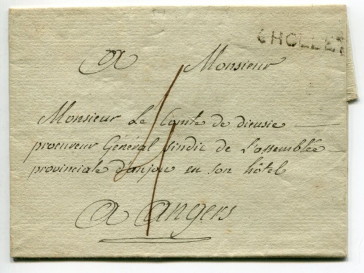 CHOLLET
A Monsieur
Monsieur Le Comte de dieusie
procureur Général sindic de L'assemblée
provinciale d'anjou en son hôtel
A Angers